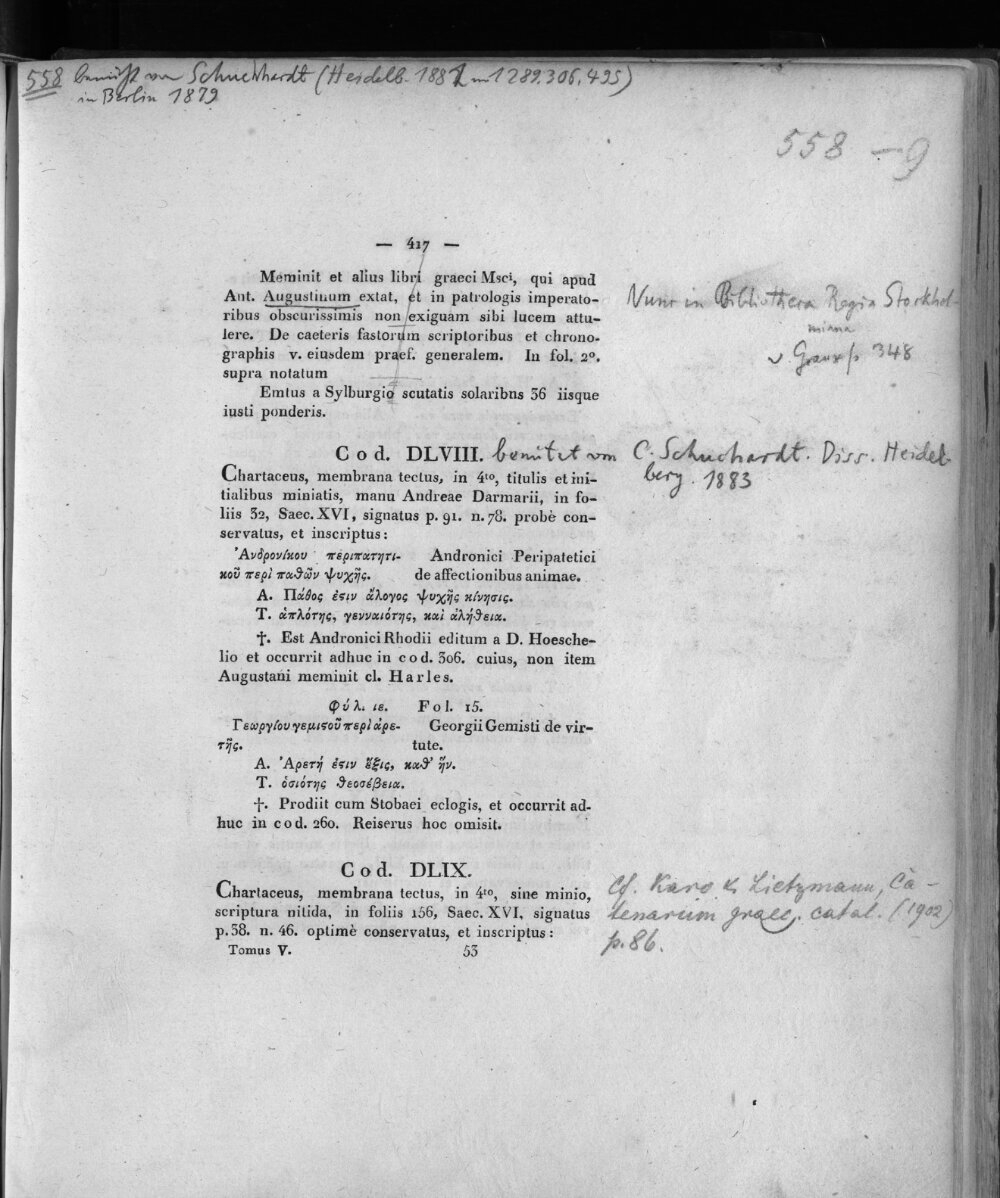 558 benützt von Schuchhardt (Heidelb. 1882 m 1 289. 306. 495)
in Berlin 1879
558 – 9
— 417 —
Meminit et alius libri graeci Mscⁱ, qui apud
Ant. Augustinum extat, et in patrologis imperato-
ribus obscurissimis non exiguam sibi lucem attu-
lere. De caeteris fastorum scriptoribus et chrono-
graphis v. eiusdem praef. generalem. In fol. 2º.
supra notatum
Emtus a Sylburgio scutatis solaribus 36 iisque
iusti ponderis.
Nunc in Bibliotheca Regia Stockhol-
miana
v. Graux p. 348
Cod. DLVIII. benützt von C. Schuchardt. Diss. Heidel-
berg. 1883
Chartaceus, membrana tectus, in 4ᵗᵒ, titulis et ini-
tialibus miniatis, manu Andreae Darmarii, in fo-
liis 32, Saec. XVI, signatus p. 91. n. 78. probè con-
servatus, et inscriptus:
Ἀνδρονίκου περιπατητι- Andronici Peripatetici
κοῦ περὶ παθῶν ψυχῆς. de affectionibus animae.
Α. Πάθος ἐϛιν ἄλογος ψυχῆς κίνησις.
Τ. ἁπλότης, γενναιότης, καὶ ἀλήθεια.
†. Est Andronici Rhodii editum a D. Hoesche-
lio et occurrit adhuc in cod. 306. cuius, non item
Augustani meminit cl. Harles.
Φύλ. ιε. Fol. 15.
Γεωργίου γεμιϛοῦ περὶ ἀρε- Georgii Gemisti de vir-
τῆς. tute.
Α. Ἀρετή ἐϛιν ἕξις, καθ' ἥν.
Τ. ὁσιότης θεοσέβεια.
†. Prodiit cum Stobaei eclogis, et occurrit ad-
huc in cod. 260. Reiserus hoc omisit.
Cod. DLIX.
Chartaceus, membrana tectus, in 4ᵗᵒ, sine minio,
scriptura nitida, in foliis 156, Saec. XVI, signatus
p. 38. n. 46. optimè conservatus, et inscriptus:
Tomus V. 53
Cf. Karo & Lietzmann, Ca-
tenarum graec. catal. (1902)
p. 86.